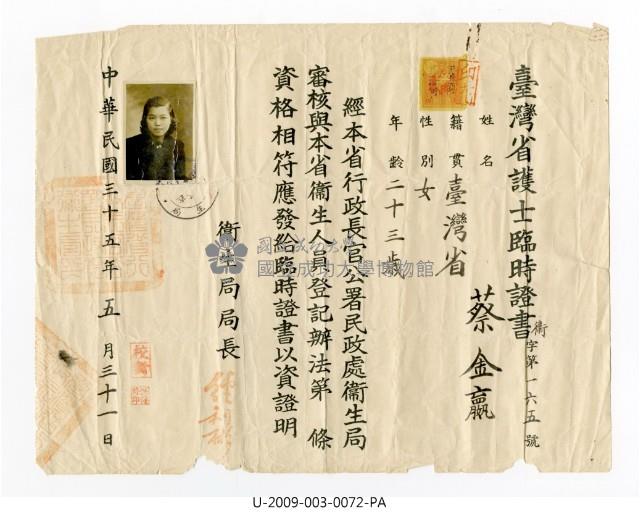 臺灣省護士臨時證書
衛字第一六五號
姓名 蔡金嬴
籍貫 臺灣省
性別 女
年齡 二十三歲
經本省行政長官公署民政處衞生局
審核與本省衞生人員登記辦法第 條
資格相符應發給臨時證書以資證明
衞生局局長
中華民國三十五年五月三十一日
國立成功大學博物館
U-2009-003-0072-PA